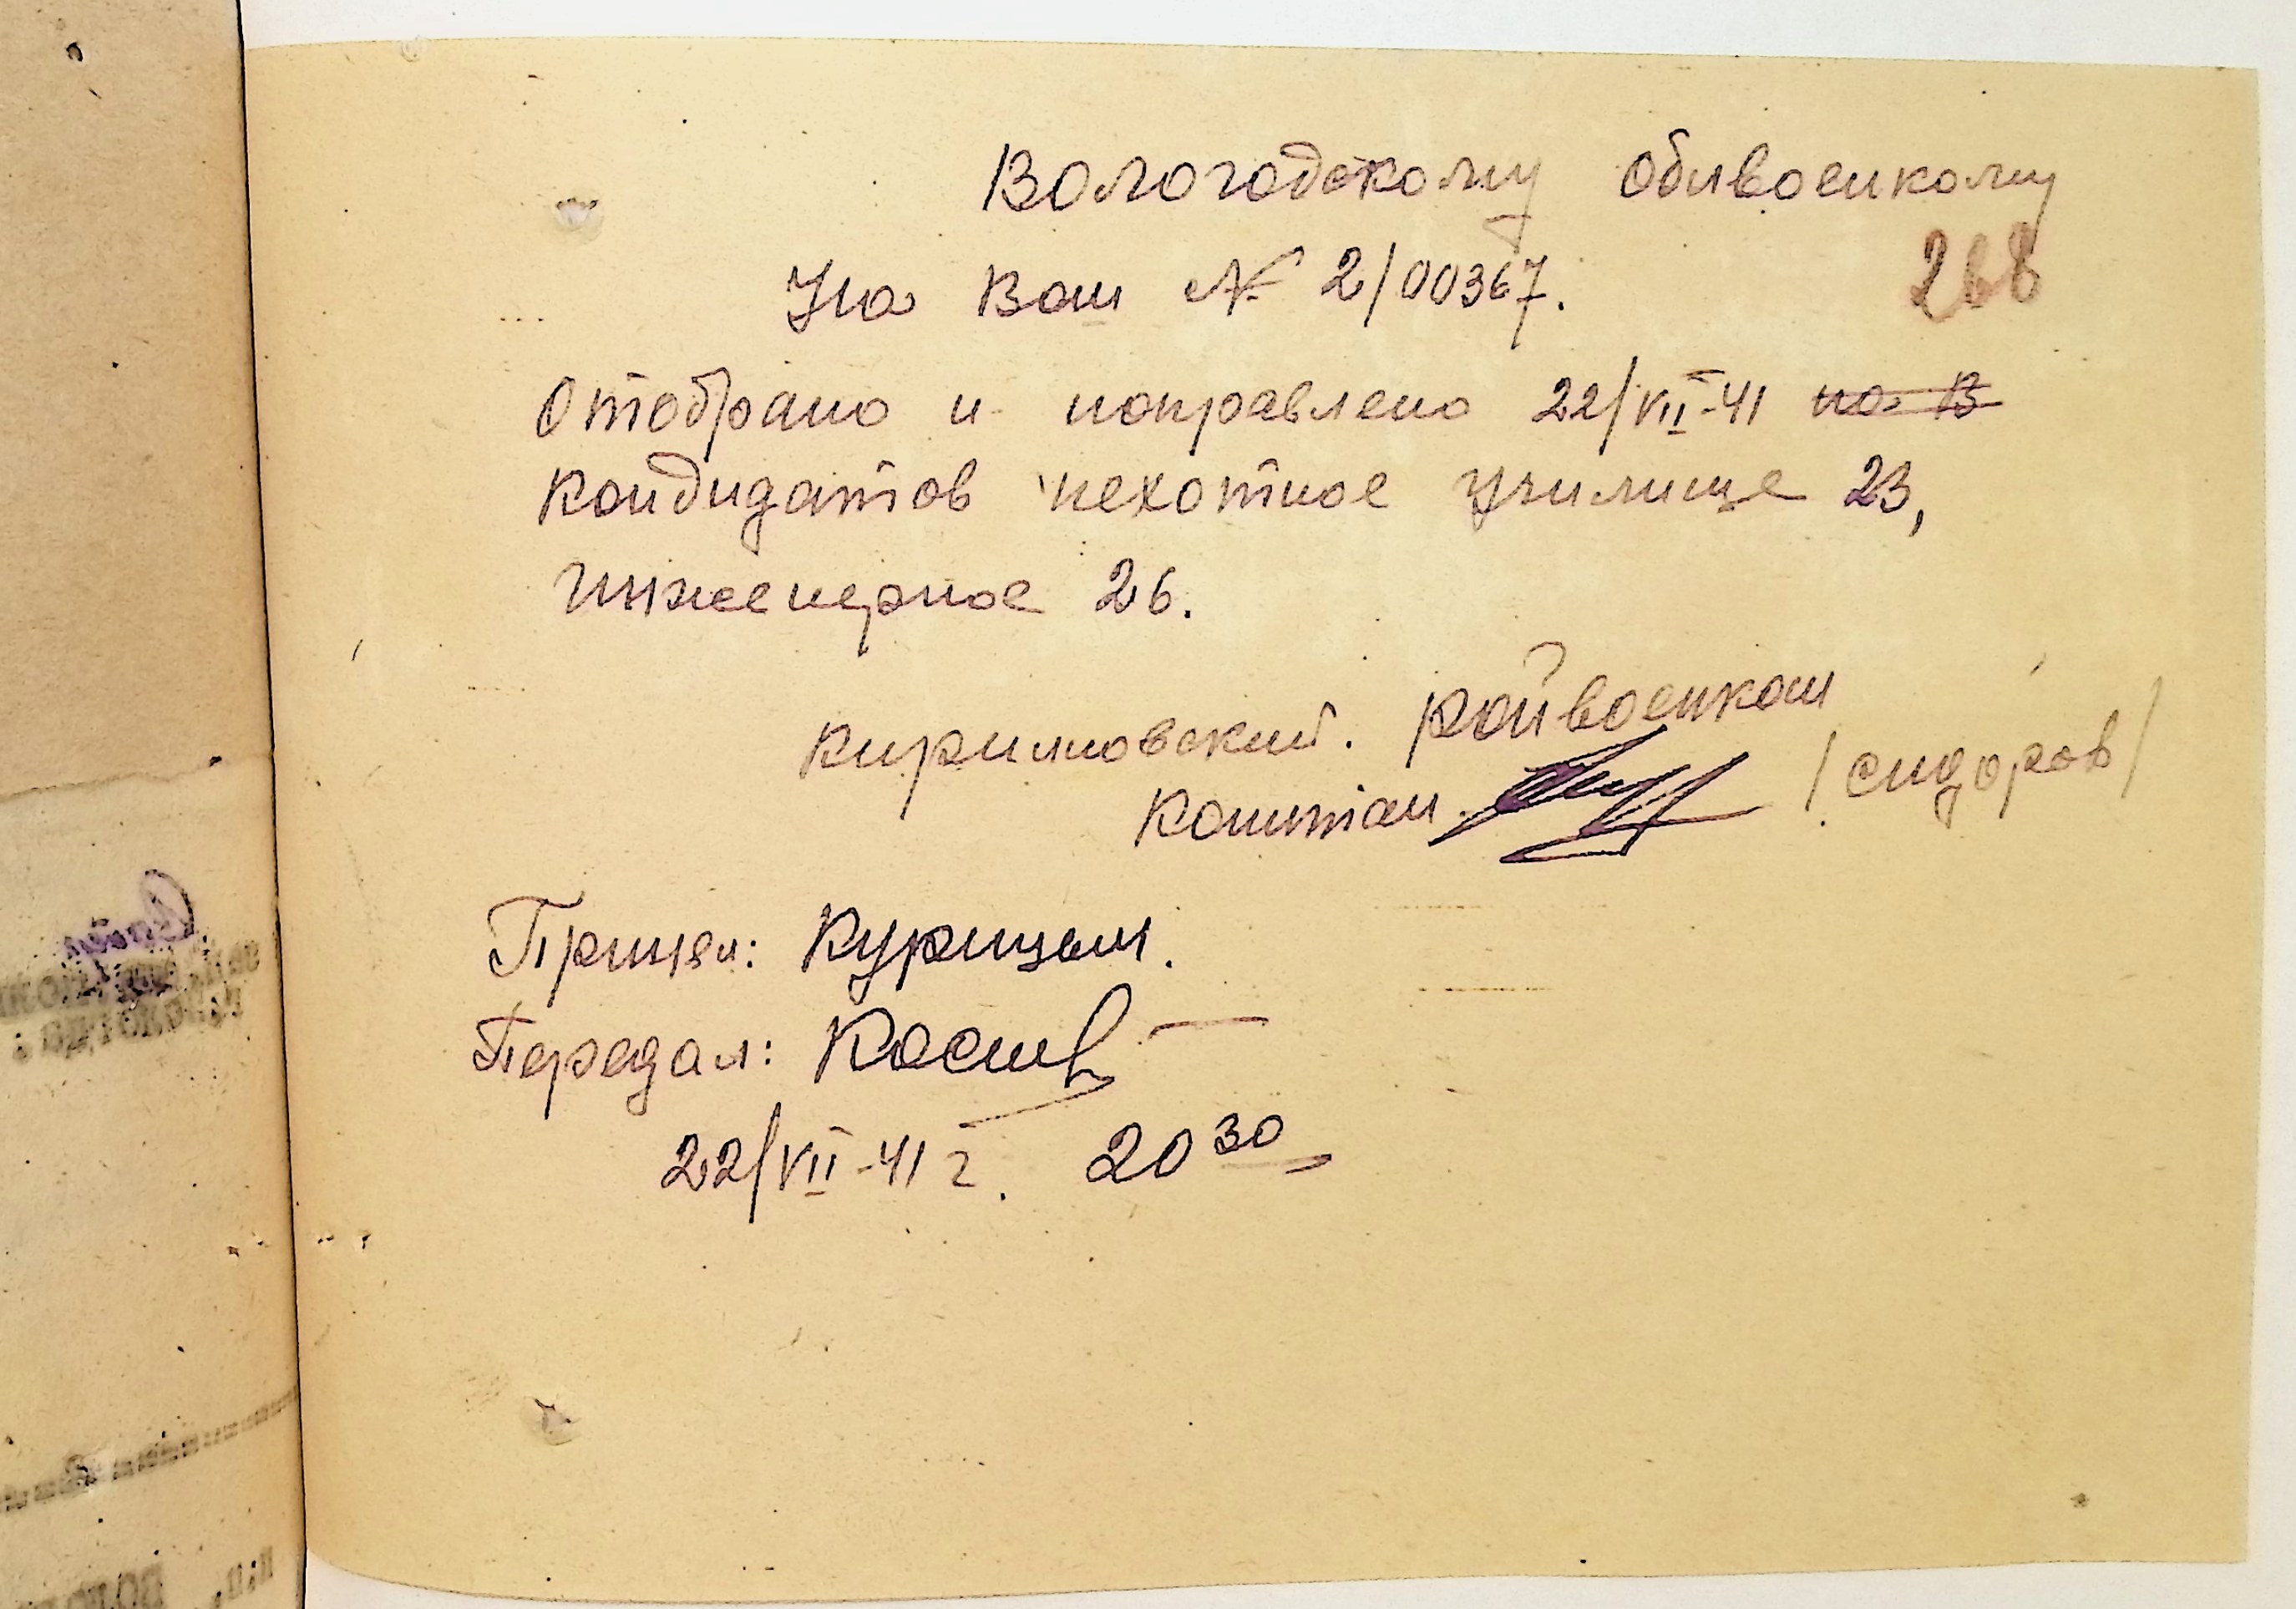 Вологодскому облвоенкому
268
На Ваш № 2/00367.
Отобрано и направлено 22/VII-41 на В
Кондидатов пехотное училище 23,
Инженерное 26.
Кирилловский. Райвоенком
Капитан /Сидоров/
Принял: Курицын.
Передал:
22/VII-41 г. 20 30